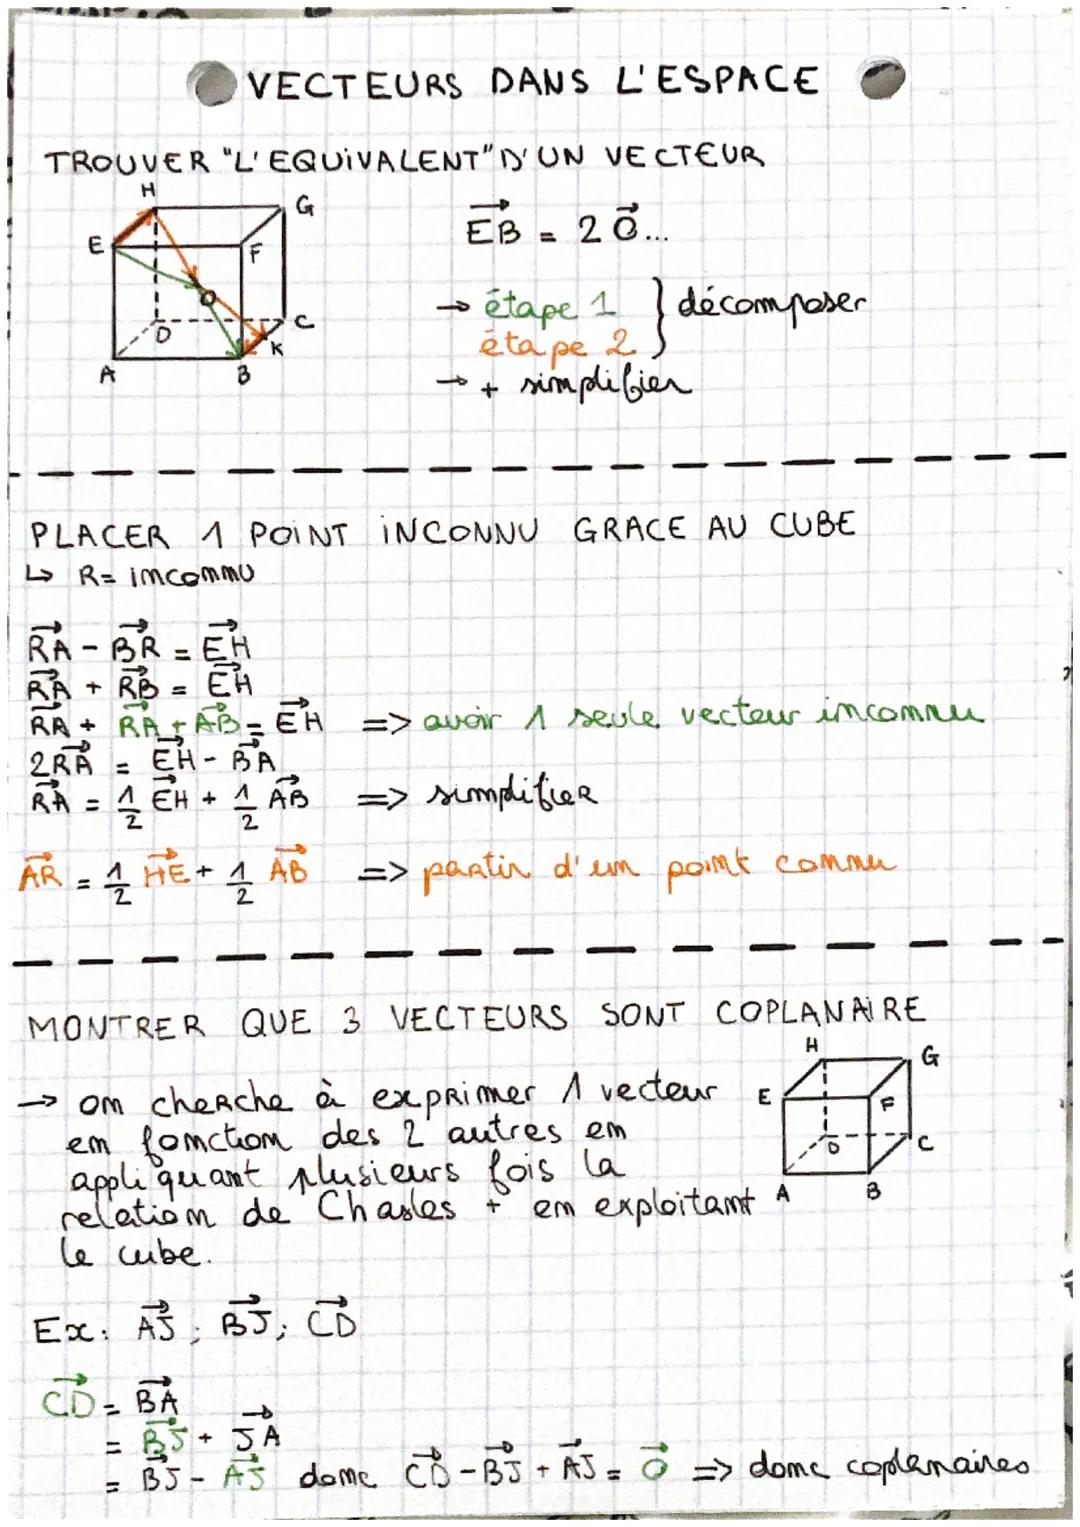 VECTEURS DANS L'ESPACE
TROUVER "L'EQUIVALENT" D'UN VECTEUR
H
G
E
F
O
D
C
K
A
B
EB = 2 O...
→ étape 1
étape 2
} décomposer
→ + simplifier
PLACER 1 POINT INCONNU GRACE AU CUBE
↳ R= inconnu
RA - BR = EH
RA + RB = EH
RA + RA + AB = EH => avoir 1 seule vecteur inconnu
2RA = EH - BA
RA = 1/2 EH + 1/2 AB => simplifier
AR = 1/2 HE + 1/2 AB => partir d'un point connu
MONTRER QUE 3 VECTEURS SONT COPLANAIRE
→ on cherche à exprimer 1 vecteur
en fonction des 2 autres en
appliquant plusieurs fois la
relation de Chasles + en exploitant
le cube.
H
G
E
F
D
C
A
B
Ex: AJ ; BJ ; CD
CD = BA
= BJ + JA
= BJ - AJ donc CD - BJ + AJ = O => donc coplanaires